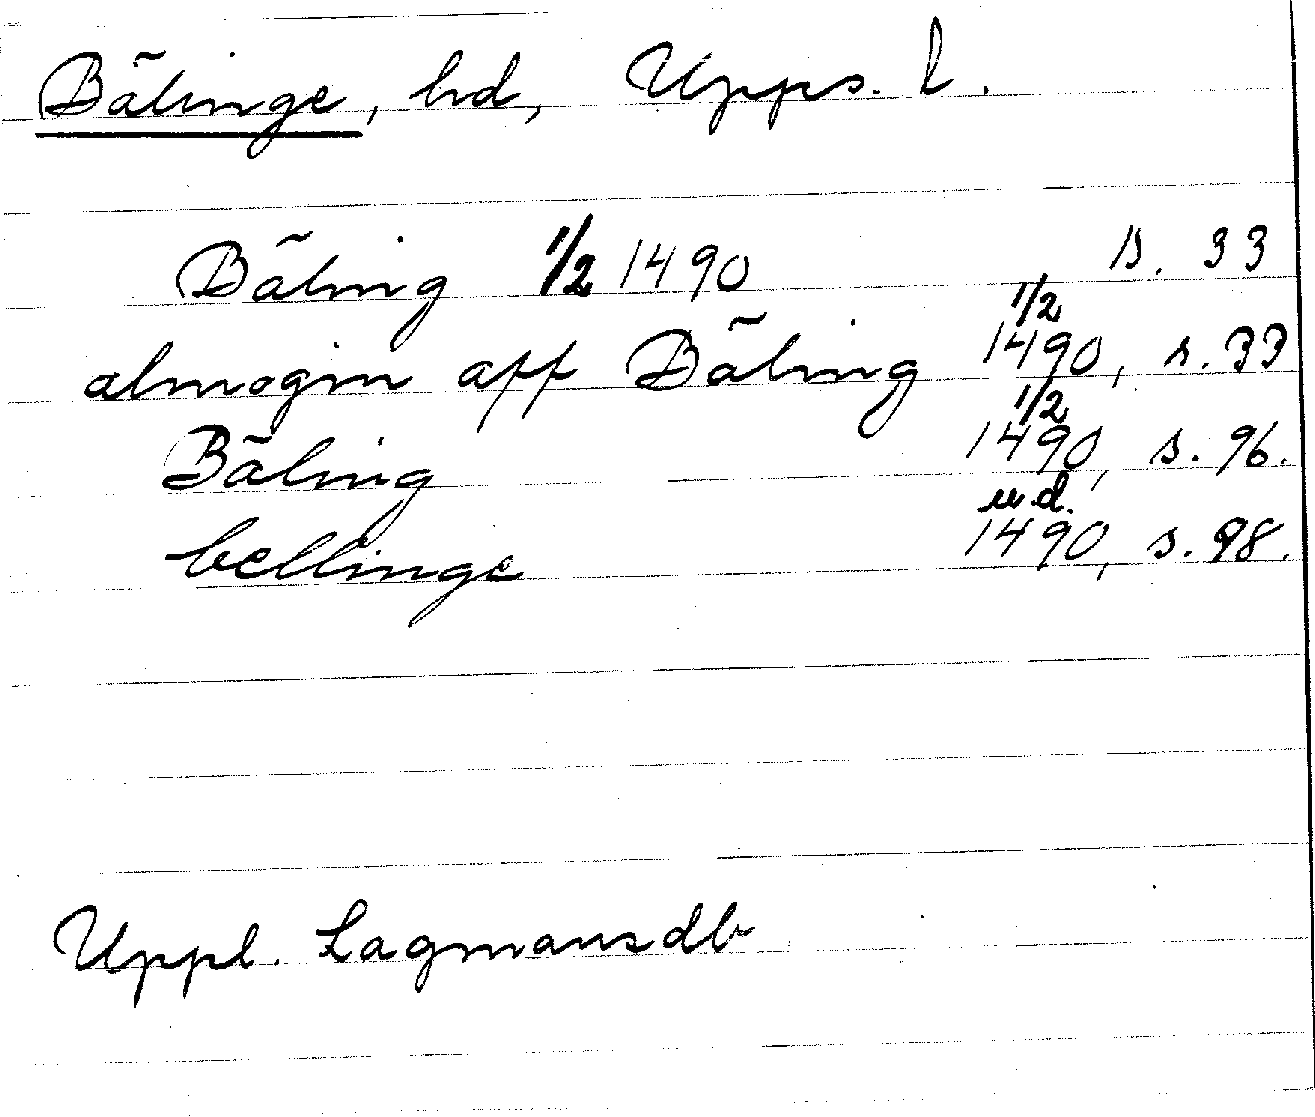 Bälinge, hd, Upps. l.
Bäling 1/2 1490 s. 33
almogin aff Bäling 1/2 1490, s. 33
Bäling 1/2 1490, s. 96.
bellinge u d. 1490, s. 98.
Uppl. Lagmansdb